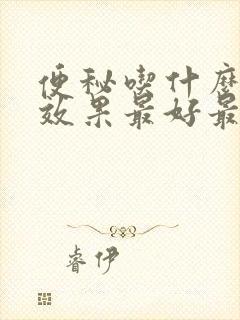 便秘喫什麼
效果最好最
睿伊